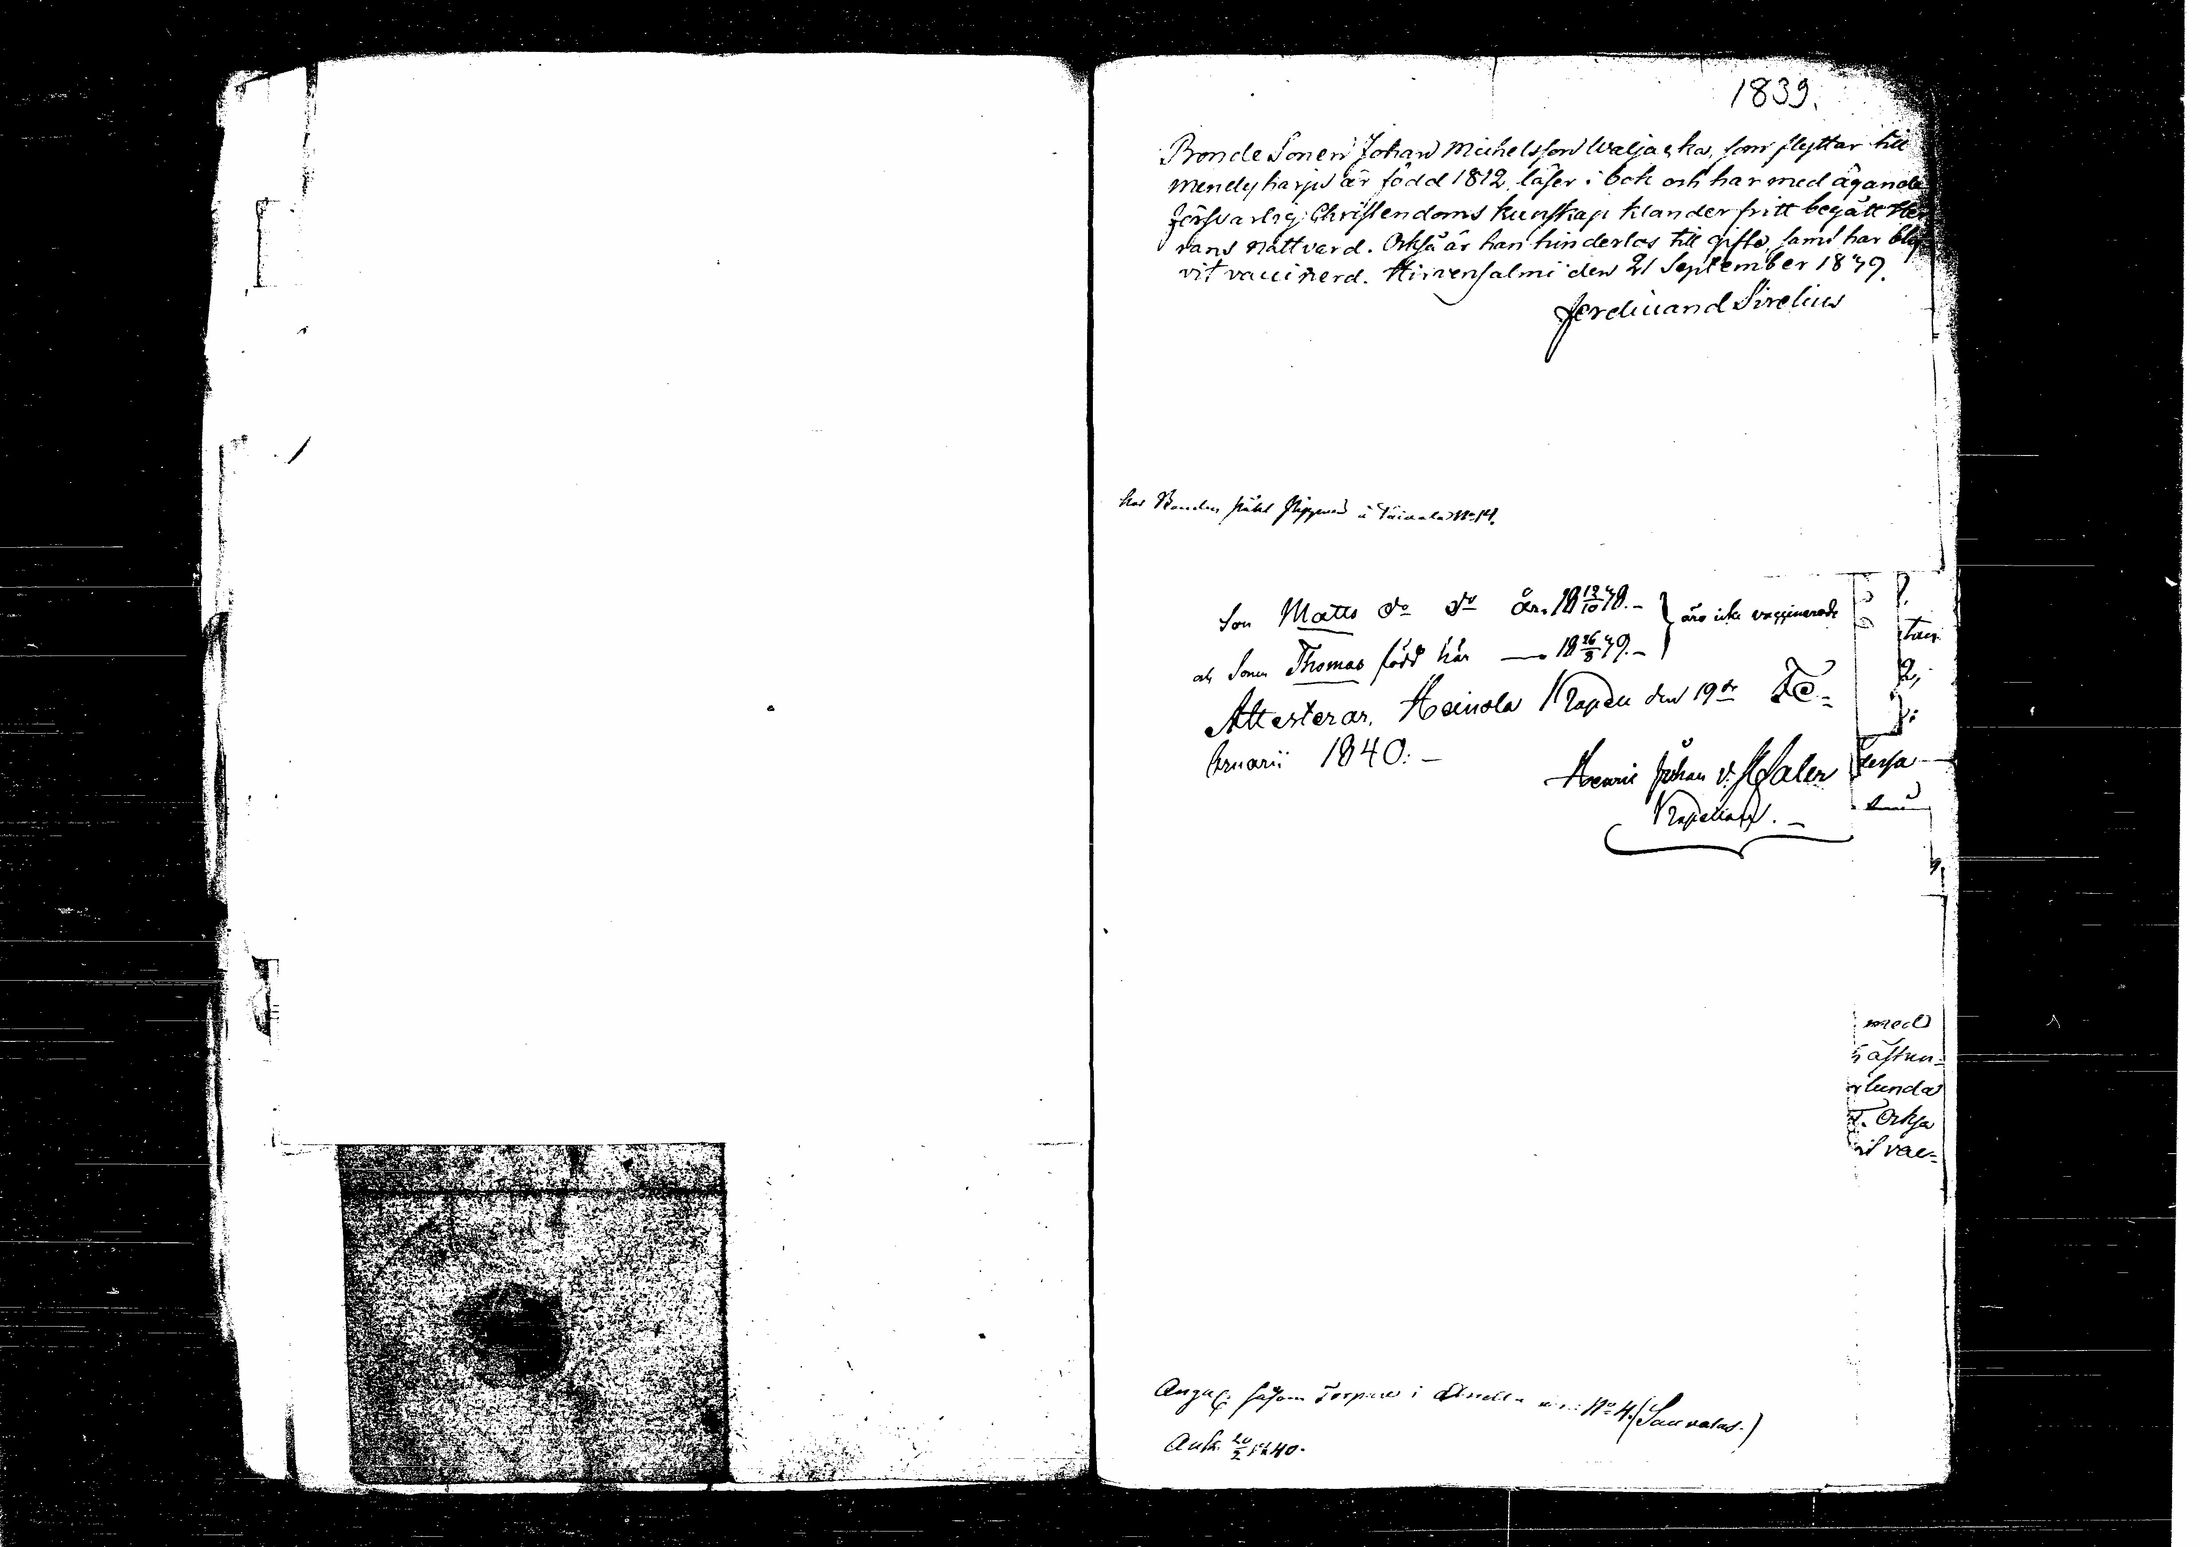 1839.
Bonde Sonen Johan Michelsson Waljacka, som flyttar till
Mendyharju är född 1812, läser i bok och har med ägande
försvarlig Christendoms kunskap klanderfritt begått Her
rans nattvard. Också är han hinderlös till gifte, samt har blif
vit vaccinerd. Hirvensalmi den 21 September 1839.
Ferdinand Sirelius
hos Bonden Påhl i No 14.
Son Matts do do år 18 12/10 38. – äro icke vaccinerade
och Sonen Thomas född här — 18 26/8 39. –
Attesterar, Heinola Kapell den 19de Fe=
bruarii 1840. –
Henric Johan
Kapellan. –
med
rlunda
T. Också
vac=
såsom Torpare i No 4. (Sauvala.)
Ank. 20/2 1840.